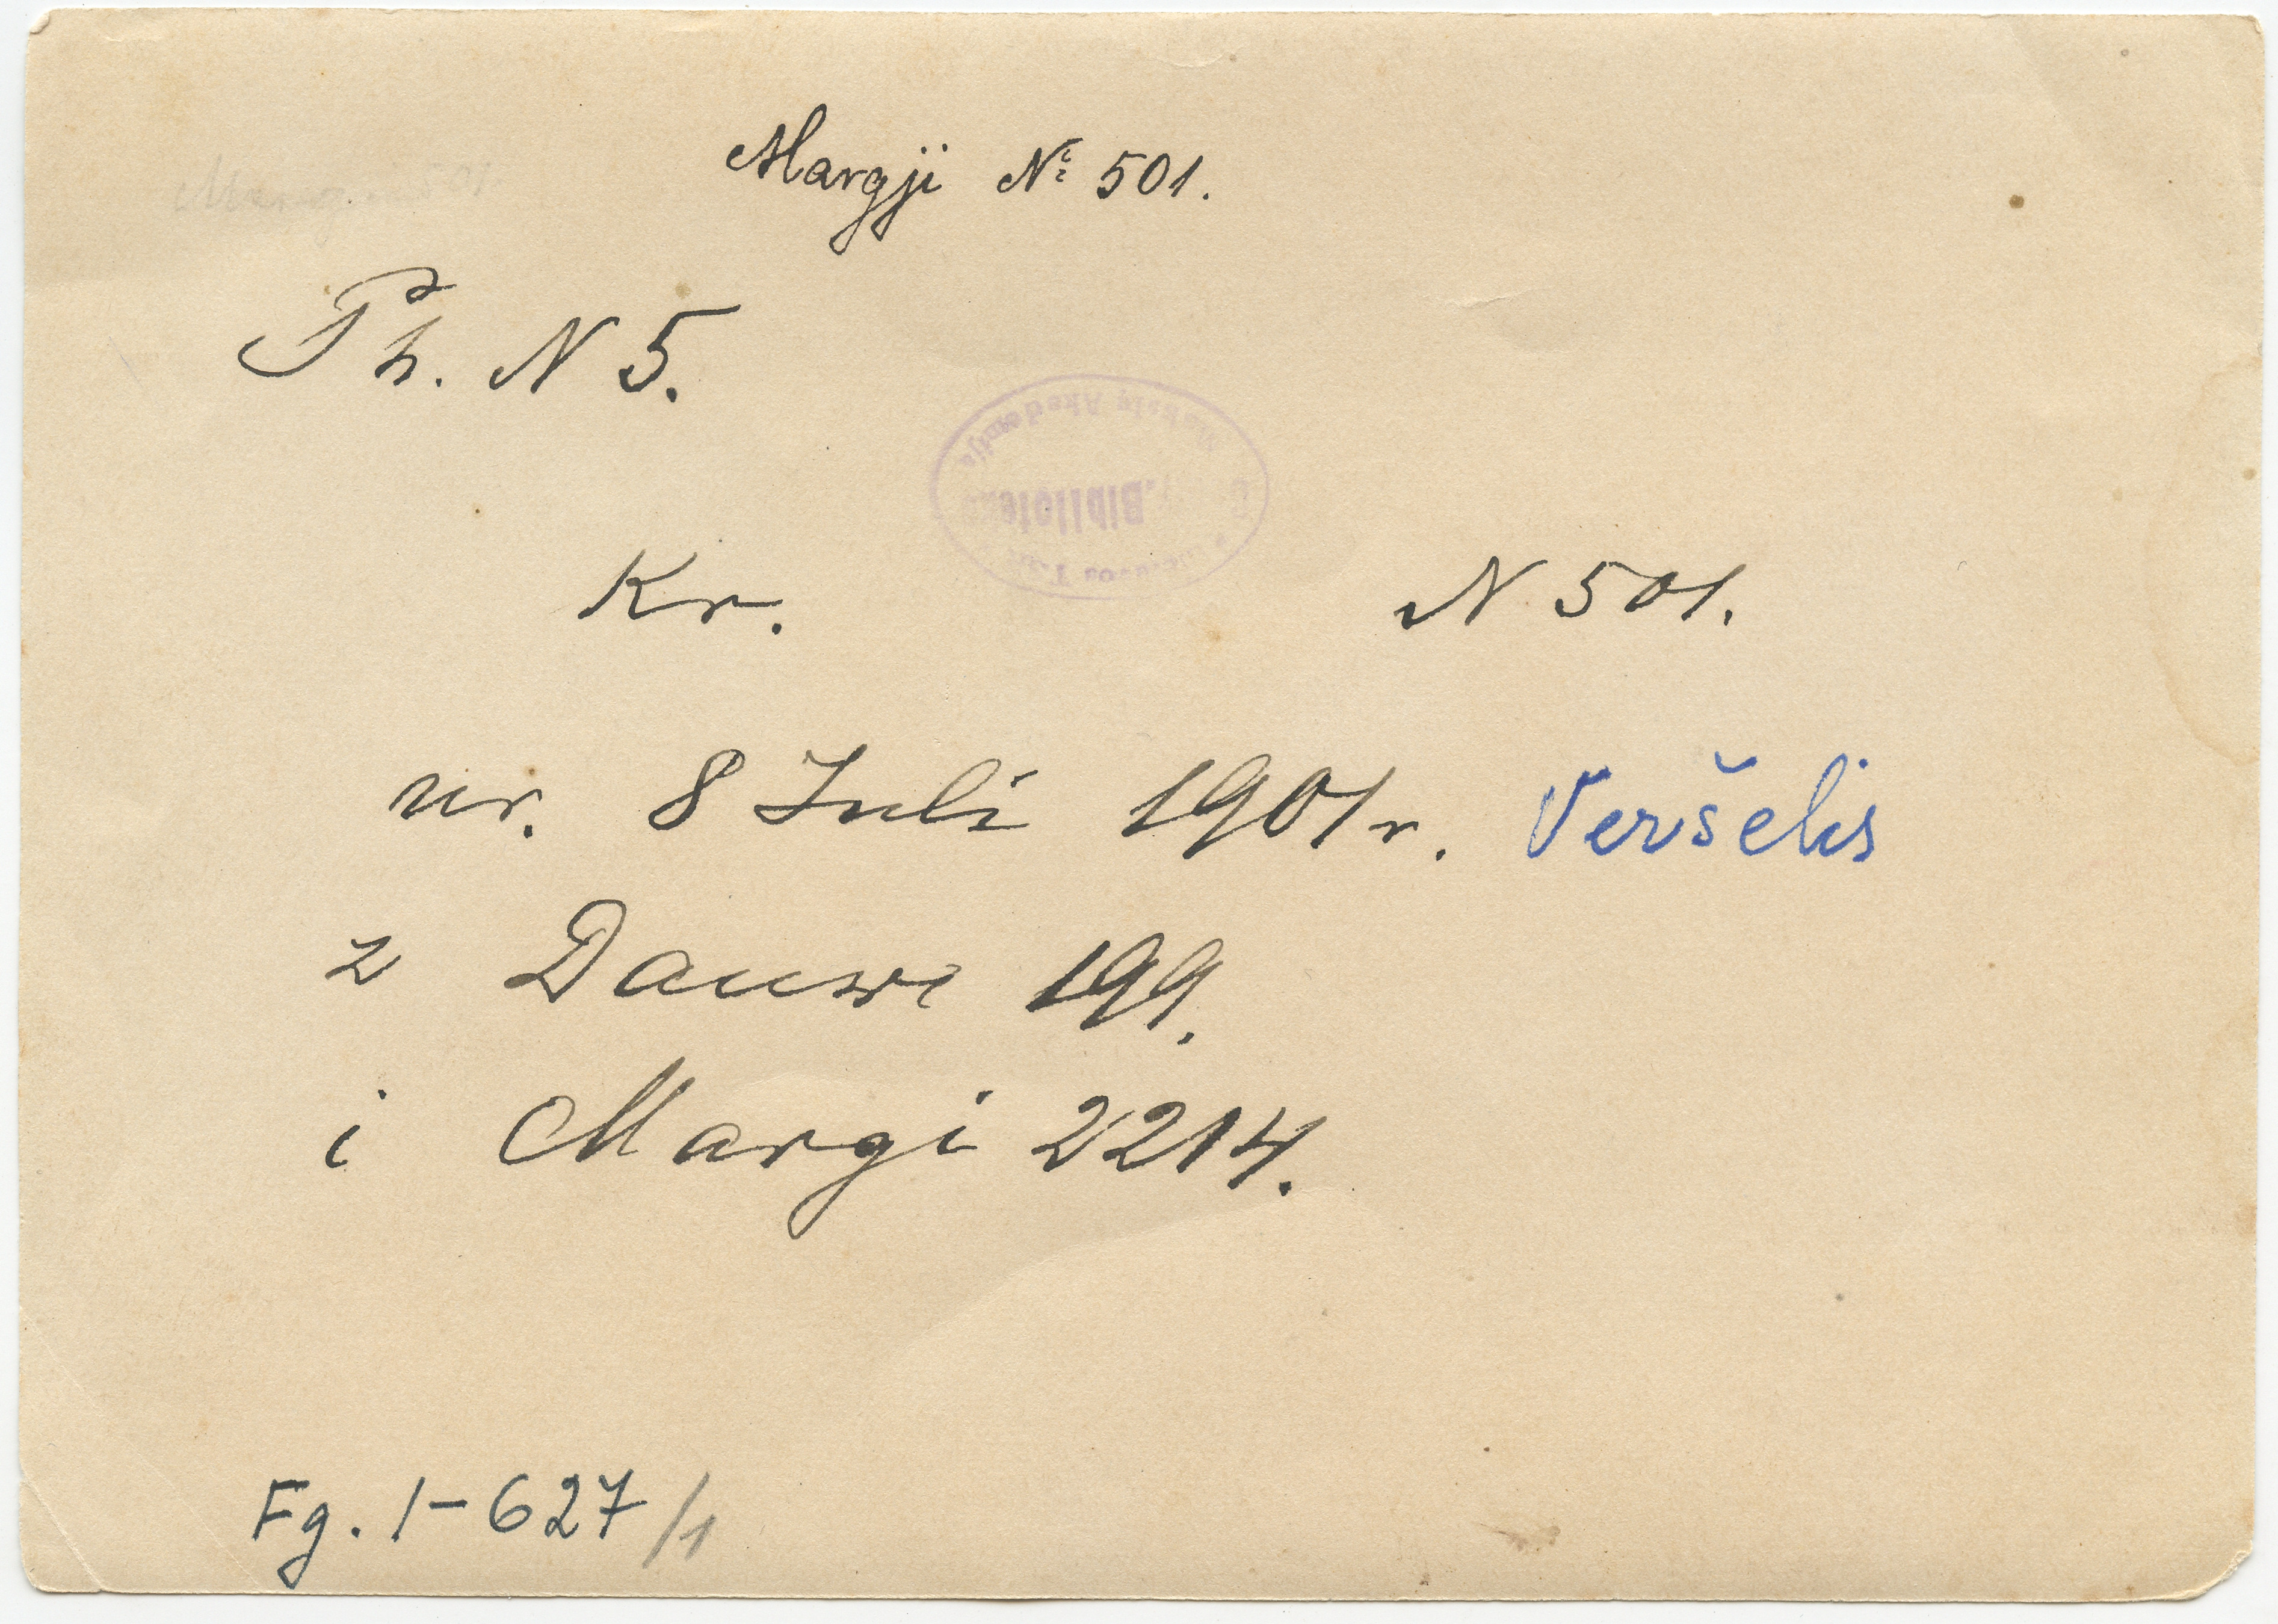 Margji № 501.
Ph. N 5.
Kr. N 501.
ur. 8 Juli 1901 r. Veršelis
z Dauwi 199.
i Margi 2214.
Fg. 1-627/1